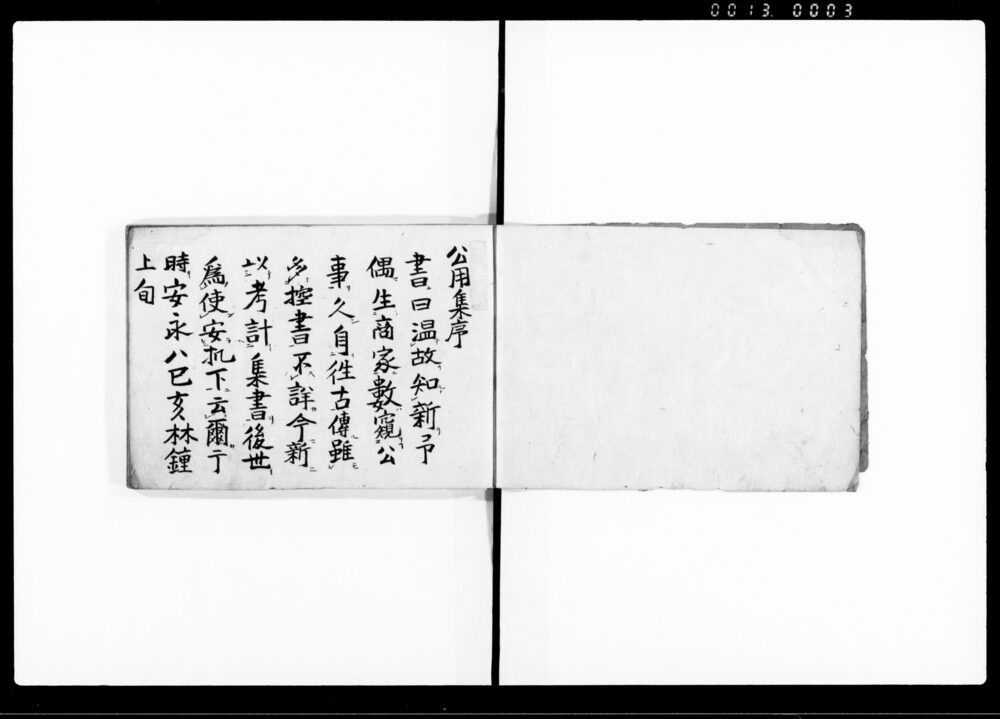 0013. 0003
公用集序
書曰温故知新予
偶生商家數窺公
事久自徃古傳雖
多控書不詳今新
以考計集書後世
爲使安机下云爾于
時安永八巳亥林鐘
上旬